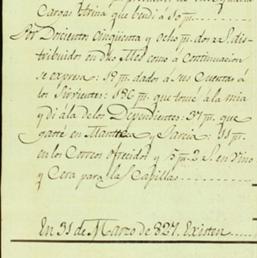 Cargas Harina que vendi á 10 p.s
Por Docientos Cinquenta y ocho p.s dos r.s dis-
tribuidos en dho Mes como a continuacion
se expresa: 19 p.s dados a sus Cuentas á
los Sirvientes: 186 p.s que tomé á la mia
y di á la de los Dependientes: 37 p.s que
gasté en Manteca y Garcia: 11 p.s
en los Correos ofrecidos y 5 p.s 2 r.s en Vino
y Cera para la Capilla
En 31 de Marzo de 827. Existen